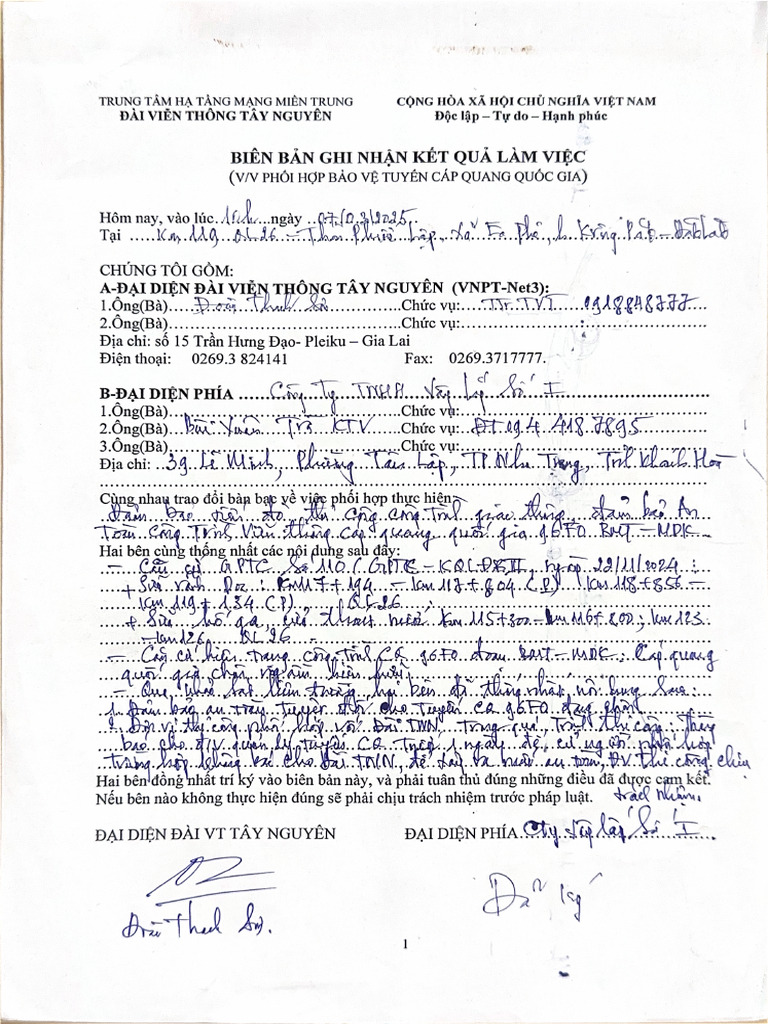 TRUNG TÂM HẠ TẦNG MẠNG MIỀN TRUNG
ĐÀI VIỄN THÔNG TÂY NGUYÊN
CỘNG HÒA XÃ HỘI CHỦ NGHĨA VIỆT NAM
Độc lập – Tự do – Hạnh phúc
BIÊN BẢN GHI NHẬN KẾT QUẢ LÀM VIỆC
(V/V PHỐI HỢP BẢO VỆ TUYẾN CÁP QUANG QUỐC GIA)
Hôm nay, vào lúc ngày 07/03/2025
Tại Km 119 QL26 – Thôn Phước Lập, Xã Ea Phê, h. Krông Pắc – Đắk Lắk
CHÚNG TÔI GỒM:
A-ĐẠI DIỆN ĐÀI VIỄN THÔNG TÂY NGUYÊN (VNPT-Net3):
1.Ông(Bà) Đoàn Thanh Chức vụ: TTr.TVT 0918848777
2.Ông(Bà) Chức vụ:
Địa chỉ: số 15 Trần Hưng Đạo- Pleiku – Gia Lai
Điện thoại: 0269.3 824141 Fax: 0269.3717777.
B-ĐẠI DIỆN PHÍA Công Ty TNHH Xây Lắp Số I
1.Ông(Bà) Chức vụ:
2.Ông(Bà) Bùi Xuân Trí KTV Chức vụ: ĐT 094 418 7895
3.Ông(Bà) Chức vụ:
Địa chỉ: 39 Lê Minh, Phường Tân Lập, TP. Nha Trang, Tỉnh Khánh Hòa
Cùng nhau trao đổi bàn bạc về việc phối hợp thực hiện
Đảm bảo thi công công trình giao thông đảm bảo An
Toàn Công Trình Viễn thông cáp quang quốc gia 96FO BMT – MDK
Hai bên cùng thống nhất các nội dung sau đây:
– Căn cứ GPTC Số 110 / GPTC – KQLĐBIII ngày 22/11/2024 :
+ Sửa rãnh Dọc : Km117+194 – Km117+804 (P) Km118+856 –
Km119+134 (P), QL26
+ Sửa hố ga, Km115+300 – Km116+800; Km123
– Km126 QL26
– Căn cứ hiện trạng công trình CQ 96FO đoạn BMT – MDK : Cáp quang
quốc gia chôn ngầm
– Qua khảo sát hiện trường hai bên đã thống nhất nội dung sau :
1. Đảm bảo an toàn tuyệt đối cho tuyến CQ 96FO
Đơn vị thi công phối hợp với Đài TVN Trong quá trình thi công : Thông
báo cho đ/v quản lý tuyến CQ Trước 1 ngày để cử người phối hợp
trường hợp không báo cho Đài TVN, để xảy ra mất an toàn, ĐV thi công chịu
trách nhiệm.
Hai bên đồng nhất trí ký vào biên bản này, và phải tuân thủ đúng những điều đã được cam kết.
Nếu bên nào không thực hiện đúng sẽ phải chịu trách nhiệm trước pháp luật.
ĐẠI DIỆN ĐÀI VT TÂY NGUYÊN
ĐẠI DIỆN PHÍA Cty Xây Lắp Số I
Đã ký
Đoàn Thanh
1